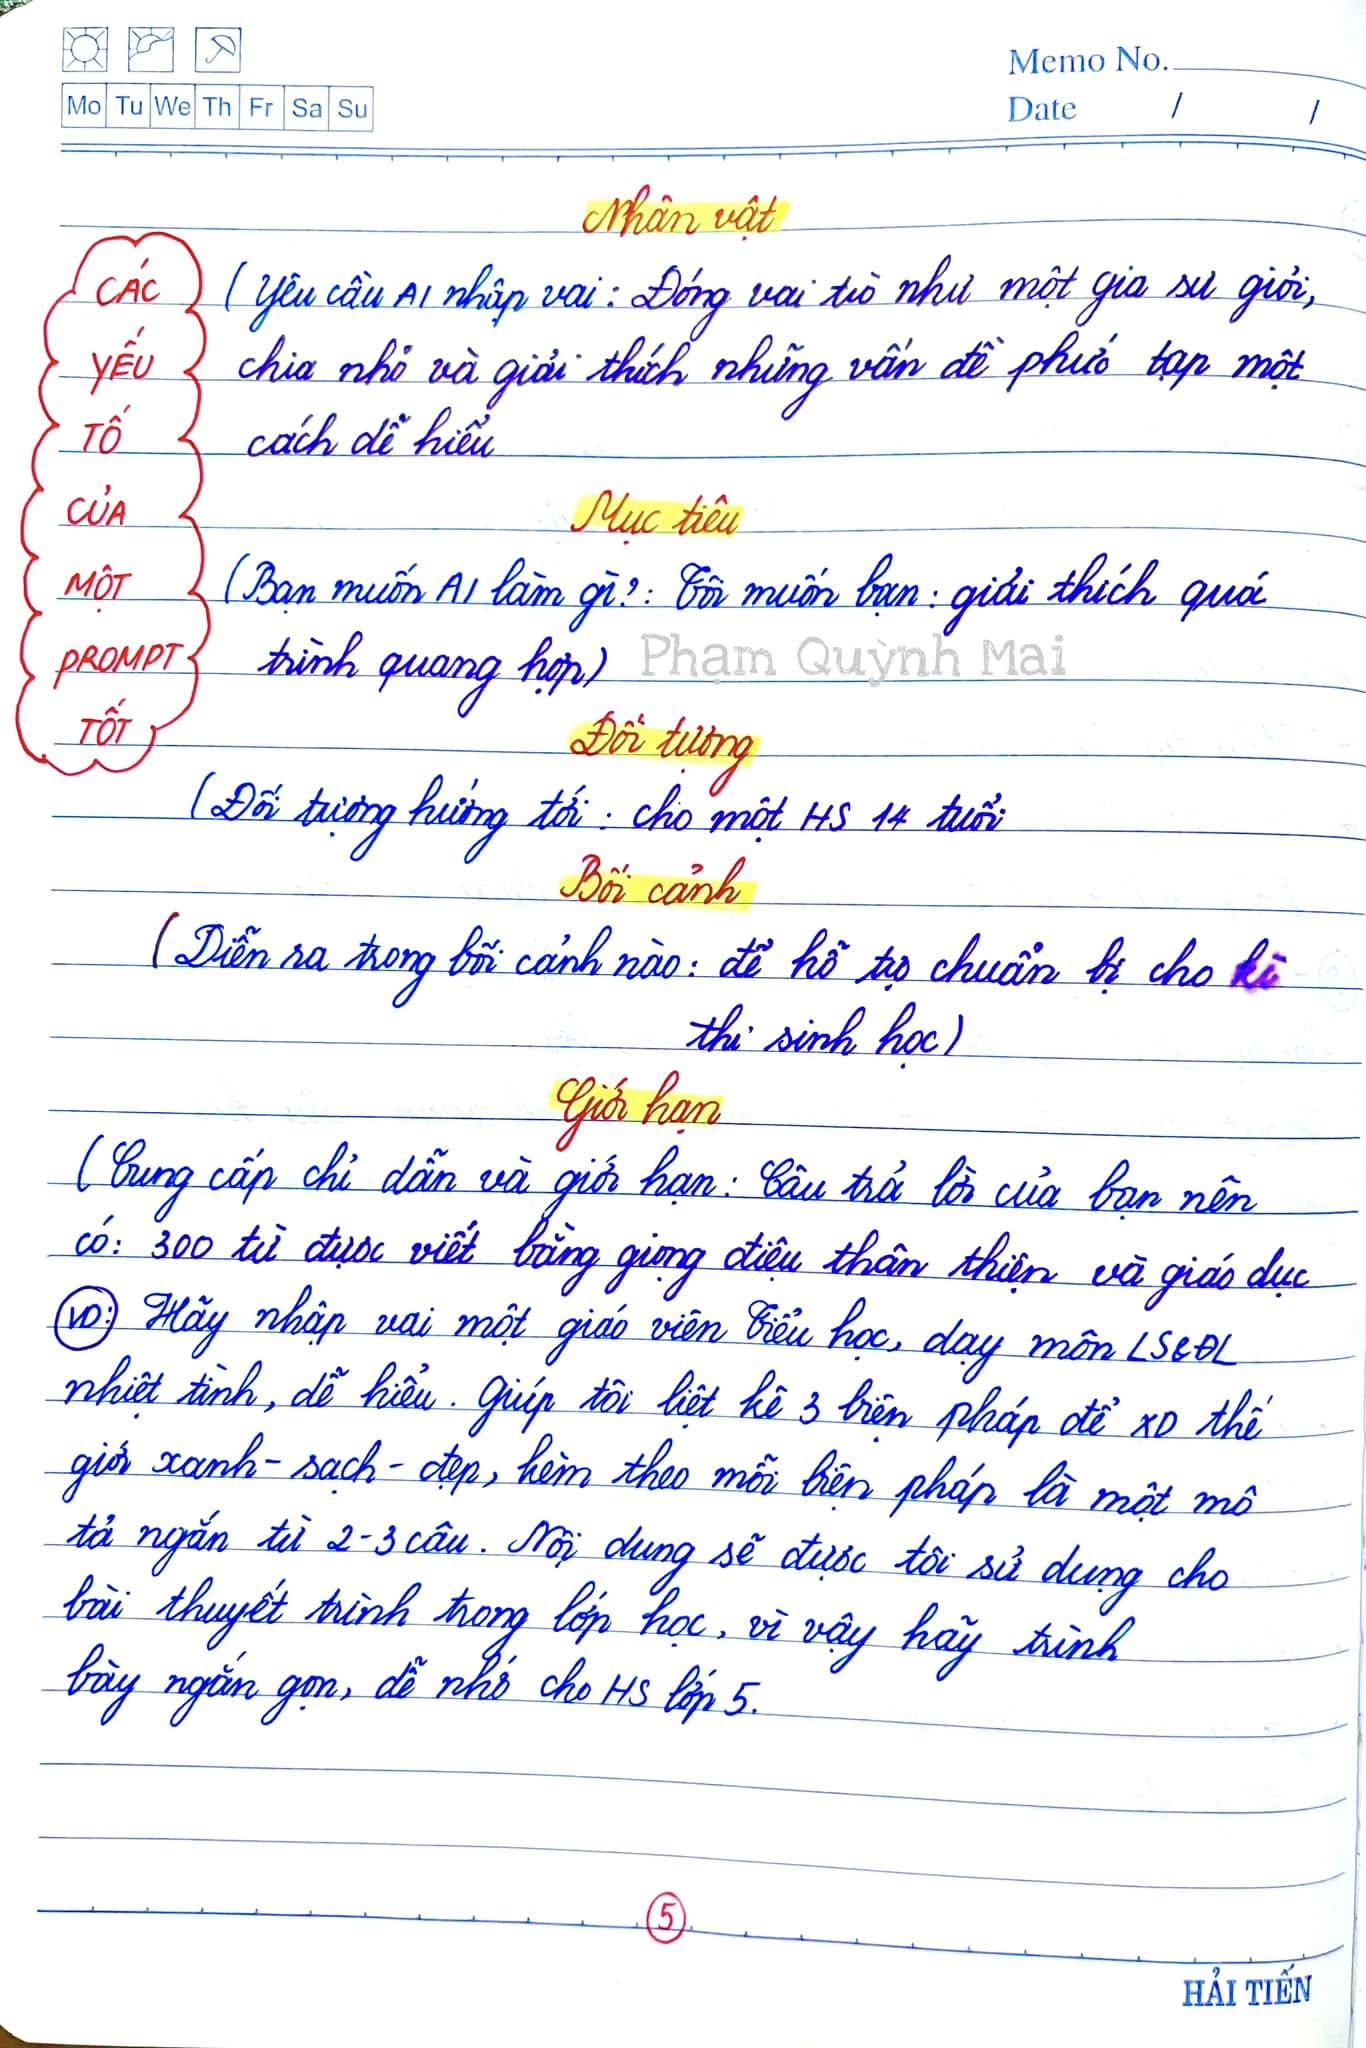 Memo No.
Mo Tu We Th Fr Sa Su
Date / /
Nhân vật
CÁC YẾU TỐ CỦA MỘT PROMPT TỐT
(Yêu cầu AI nhập vai: Đóng vai trò như một gia sư giỏi,
chia nhỏ và giải thích những vấn đề phức tạp một
cách dễ hiểu
Mục tiêu
(Bạn muốn AI làm gì?: Tôi muốn bạn: giải thích quá
trình quang hợp)
Phạm Quỳnh Mai
Đối tượng
(Đối tượng hướng tới: cho một HS 14 tuổi
Bối cảnh
(Diễn ra trong bối cảnh nào: để hỗ trợ chuẩn bị cho kì
thi sinh học)
Giới hạn
(Cung cấp chỉ dẫn và giới hạn: Câu trả lời của bạn nên
có: 300 từ được viết bằng giọng điệu thân thiện và giáo dục
VD: Hãy nhập vai một giáo viên Tiểu học, dạy môn LS&ĐL
nhiệt tình, dễ hiểu. Giúp tôi liệt kê 3 biện pháp để XD thế
giới xanh-sạch-đẹp, kèm theo mỗi biện pháp là một mô
tả ngắn từ 2-3 câu. Nội dung sẽ được tôi sử dụng cho
bài thuyết trình trong lớp học, vì vậy hãy trình
bày ngắn gọn, dễ nhớ cho HS lớp 5.
5
HẢI TIẾN